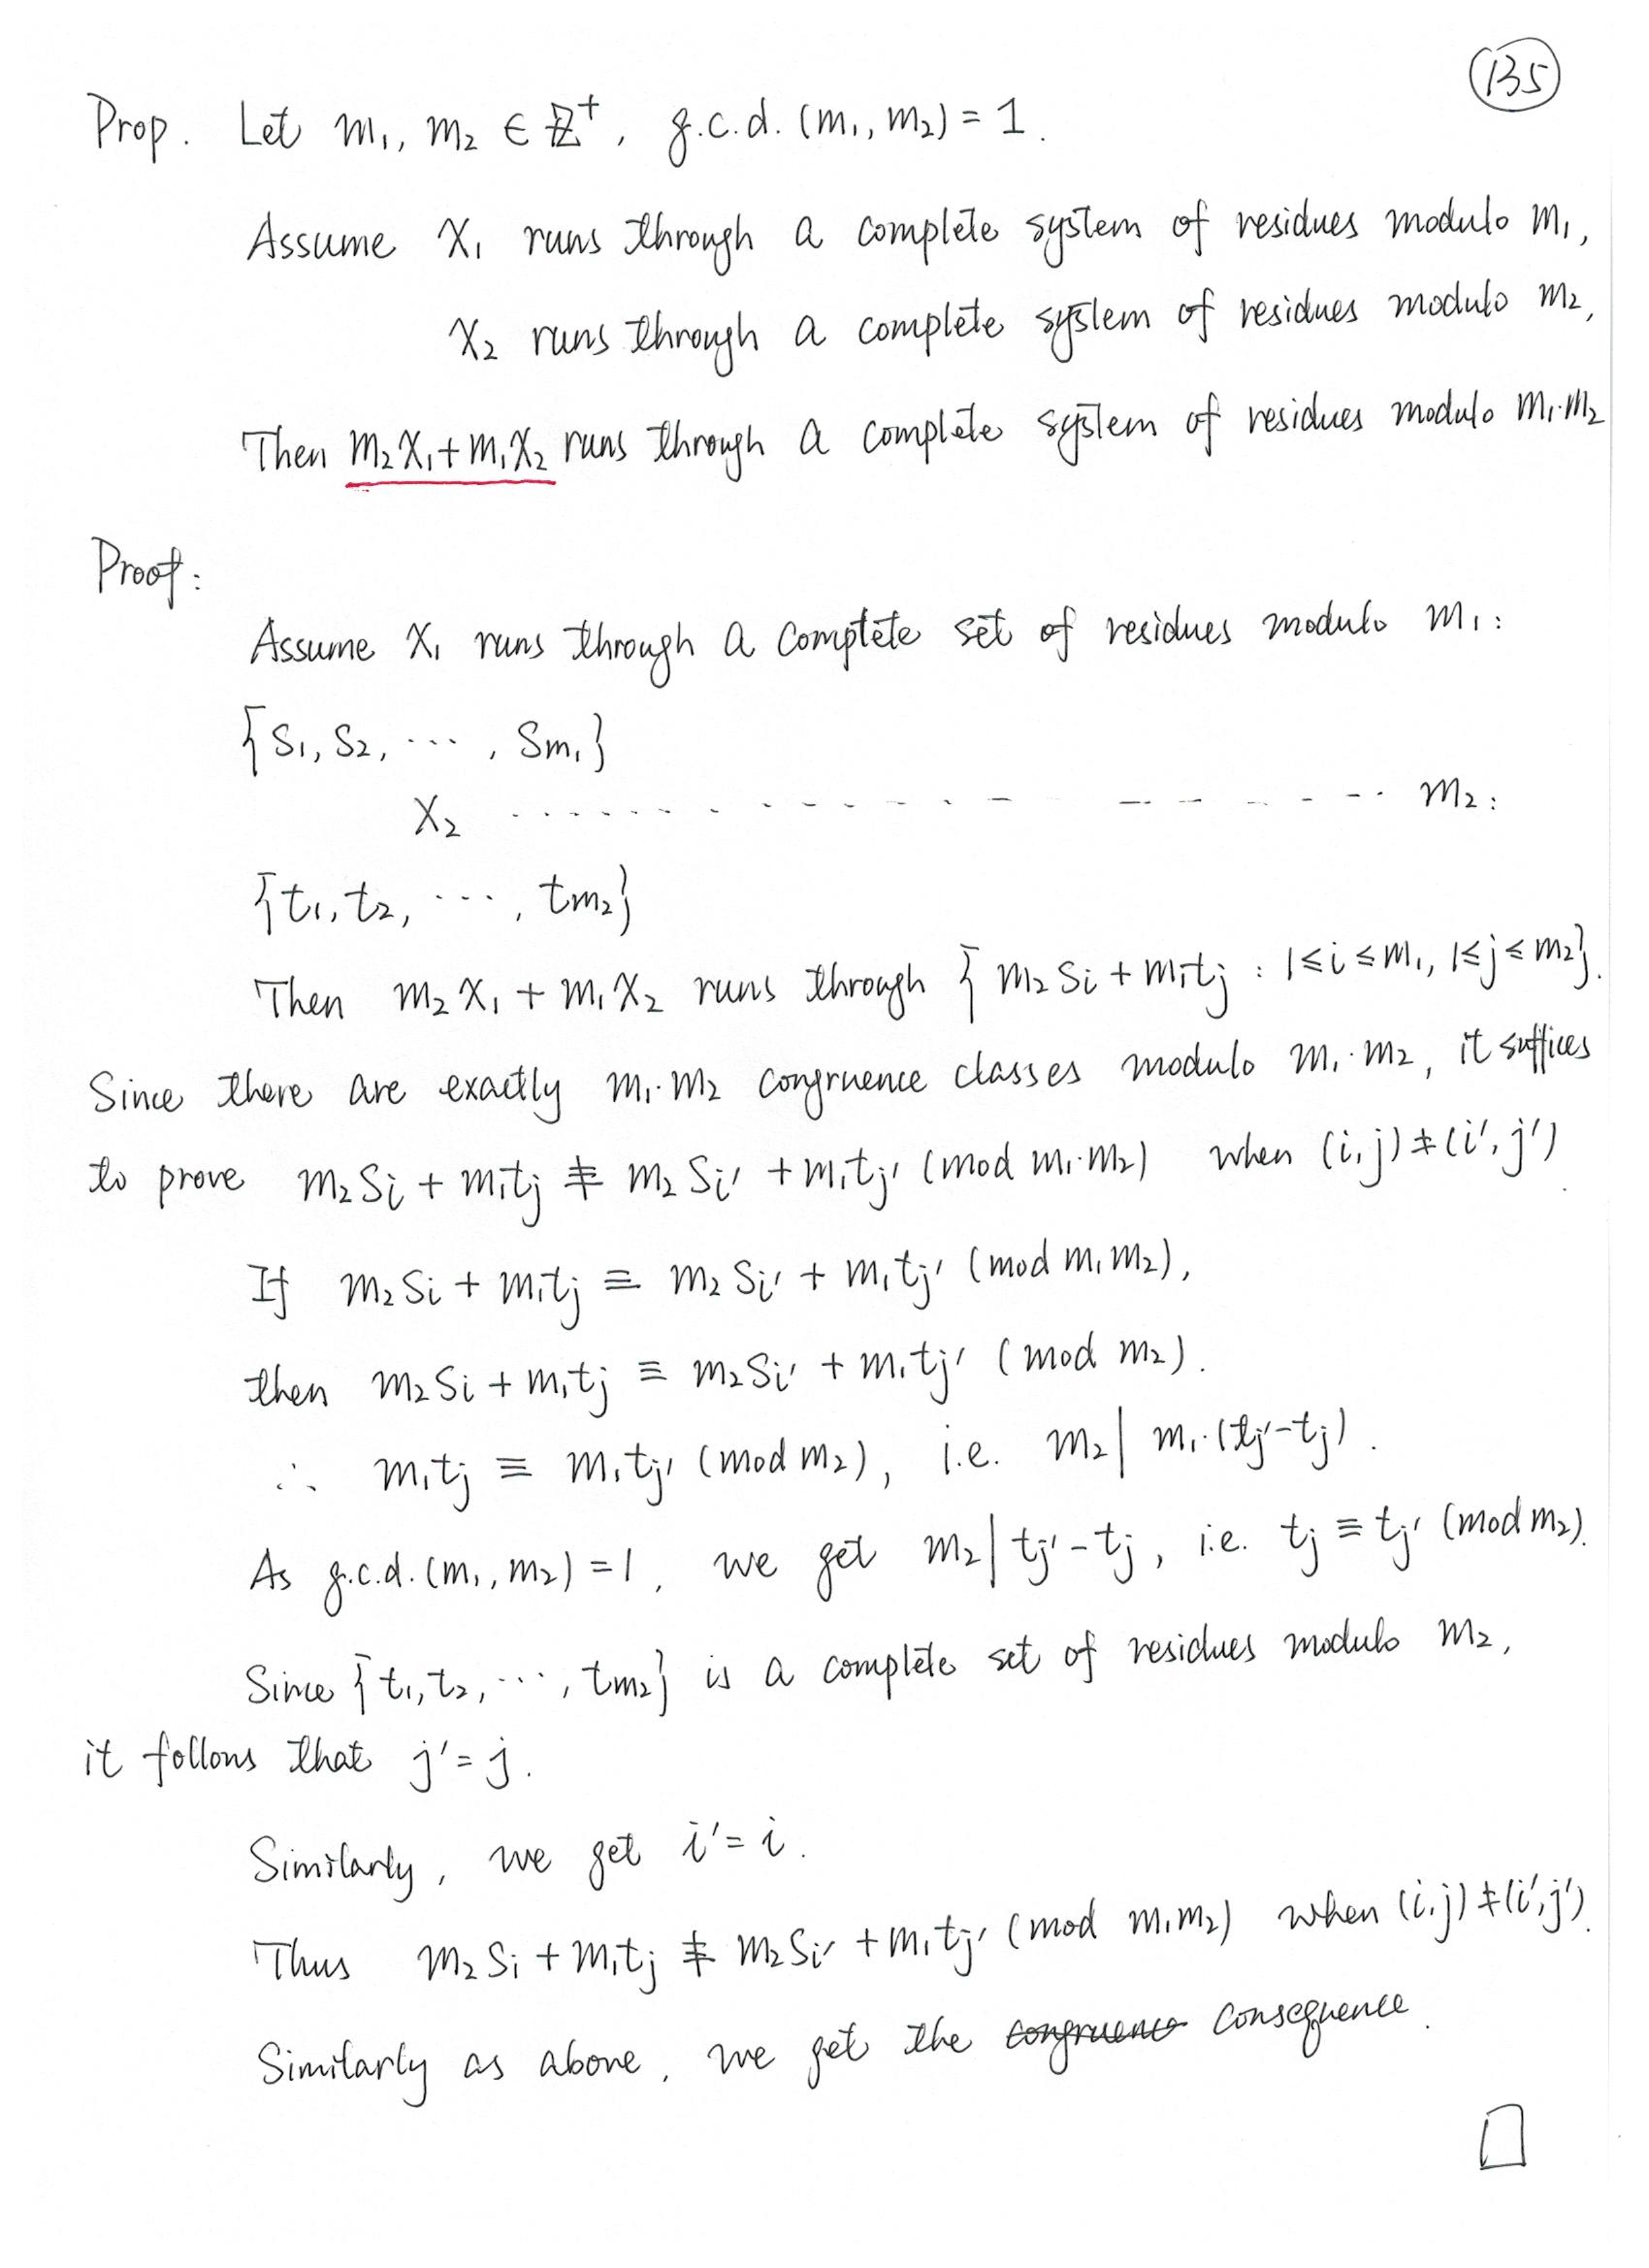 135
Prop. Let m₁, m₂ ∈ ℤ⁺, g.c.d. (m₁, m₂) = 1.
Assume X₁ runs through a complete system of residues modulo m₁,
X₂ runs through a complete system of residues modulo m₂,
Then m₂X₁ + m₁X₂ runs through a complete system of residues modulo m₁·m₂
Proof:
Assume X₁ runs through a complete set of residues modulo m₁:
{s₁, s₂, ..., sm₁}
X₂ .................. m₂:
{t₁, t₂, ..., tm₂}
Then m₂X₁ + m₁X₂ runs through { m₂si + m₁tj : 1≤i≤m₁, 1≤j≤m₂}.
Since there are exactly m₁·m₂ congruence classes modulo m₁·m₂, it suffices
to prove m₂si + m₁tj ≢ m₂si' + m₁tj' (mod m₁·m₂) when (i,j) ≠ (i',j').
If m₂si + m₁tj ≡ m₂si' + m₁tj' (mod m₁m₂),
then m₂si + m₁tj ≡ m₂si' + m₁tj' (mod m₂).
∴ m₁tj ≡ m₁tj' (mod m₂), i.e. m₂ | m₁·(tj'-tj).
As g.c.d. (m₁, m₂) = 1, we get m₂ | tj'-tj, i.e. tj ≡ tj' (mod m₂).
Since {t₁, t₂, ..., tm₂} is a complete set of residues modulo m₂,
it follows that j' = j.
Similarly, we get i' = i.
Thus m₂si + m₁tj ≢ m₂si' + m₁tj' (mod m₁m₂) when (i,j) ≠ (i',j').
Similarly as above, we get the congruence consequence.